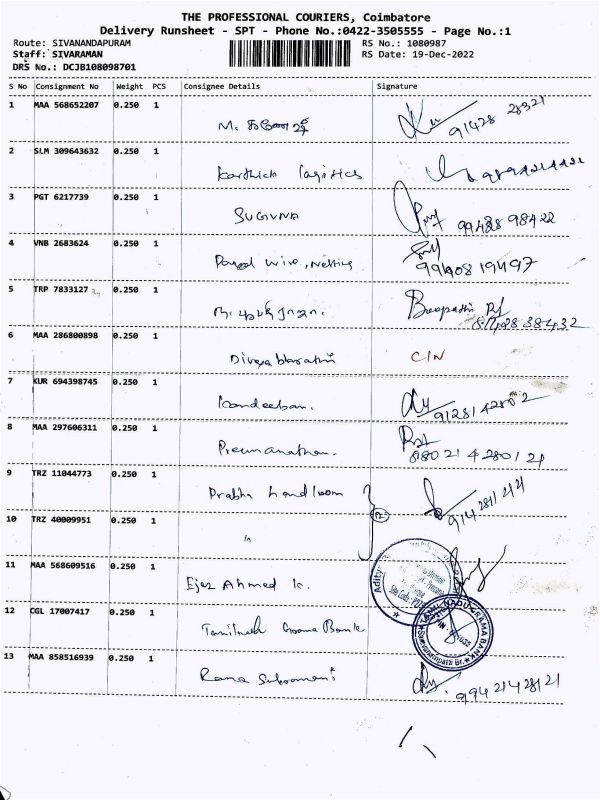 THE PROFESSIONAL COURIERS, Coimbatore
Delivery Runsheet - SPT - Phone No.:0422-3505555 - Page No.:1
Route: SIVANANDAPURAM RS No.: 1080987
Staff: SIVARAMAN RS Date: 19-Dec-2022
DRS No.: DCJB108098701
S No Consignment No Weight PCS Consignee Details Signature
1 MAA 568652207 0.250 1
M. 91428 28321
2 SLM 309643632 0.250 1
Karthick Logistics
3 PGT 6217739 0.250 1
SUGUNA 99438 98422
4 VNB 2683624 0.250 1
Wire, Netting 99408 19497
5 TRP 7833127 0.250 1
Boopathi
6 MAA 286800898 0.250 1
Divyabharathi C/N
7 KUR 694398745 0.250 1
Kandeeban. 9128142802
8 MAA 297606311 0.250 1
Preemanathan.
9 TRZ 11044773 0.250 1
Prabha Handloom
10 TRZ 40009951 0.250 1
11 MAA 568609516 0.250 1
Ejaz Ahmed K.
12 CGL 17007417 0.250 1
Tamilnadu Grama Bank
TAMIL NADU GRAMA BANK
13 MAA 858516939 0.250 1
Rama Subramani 99421428121